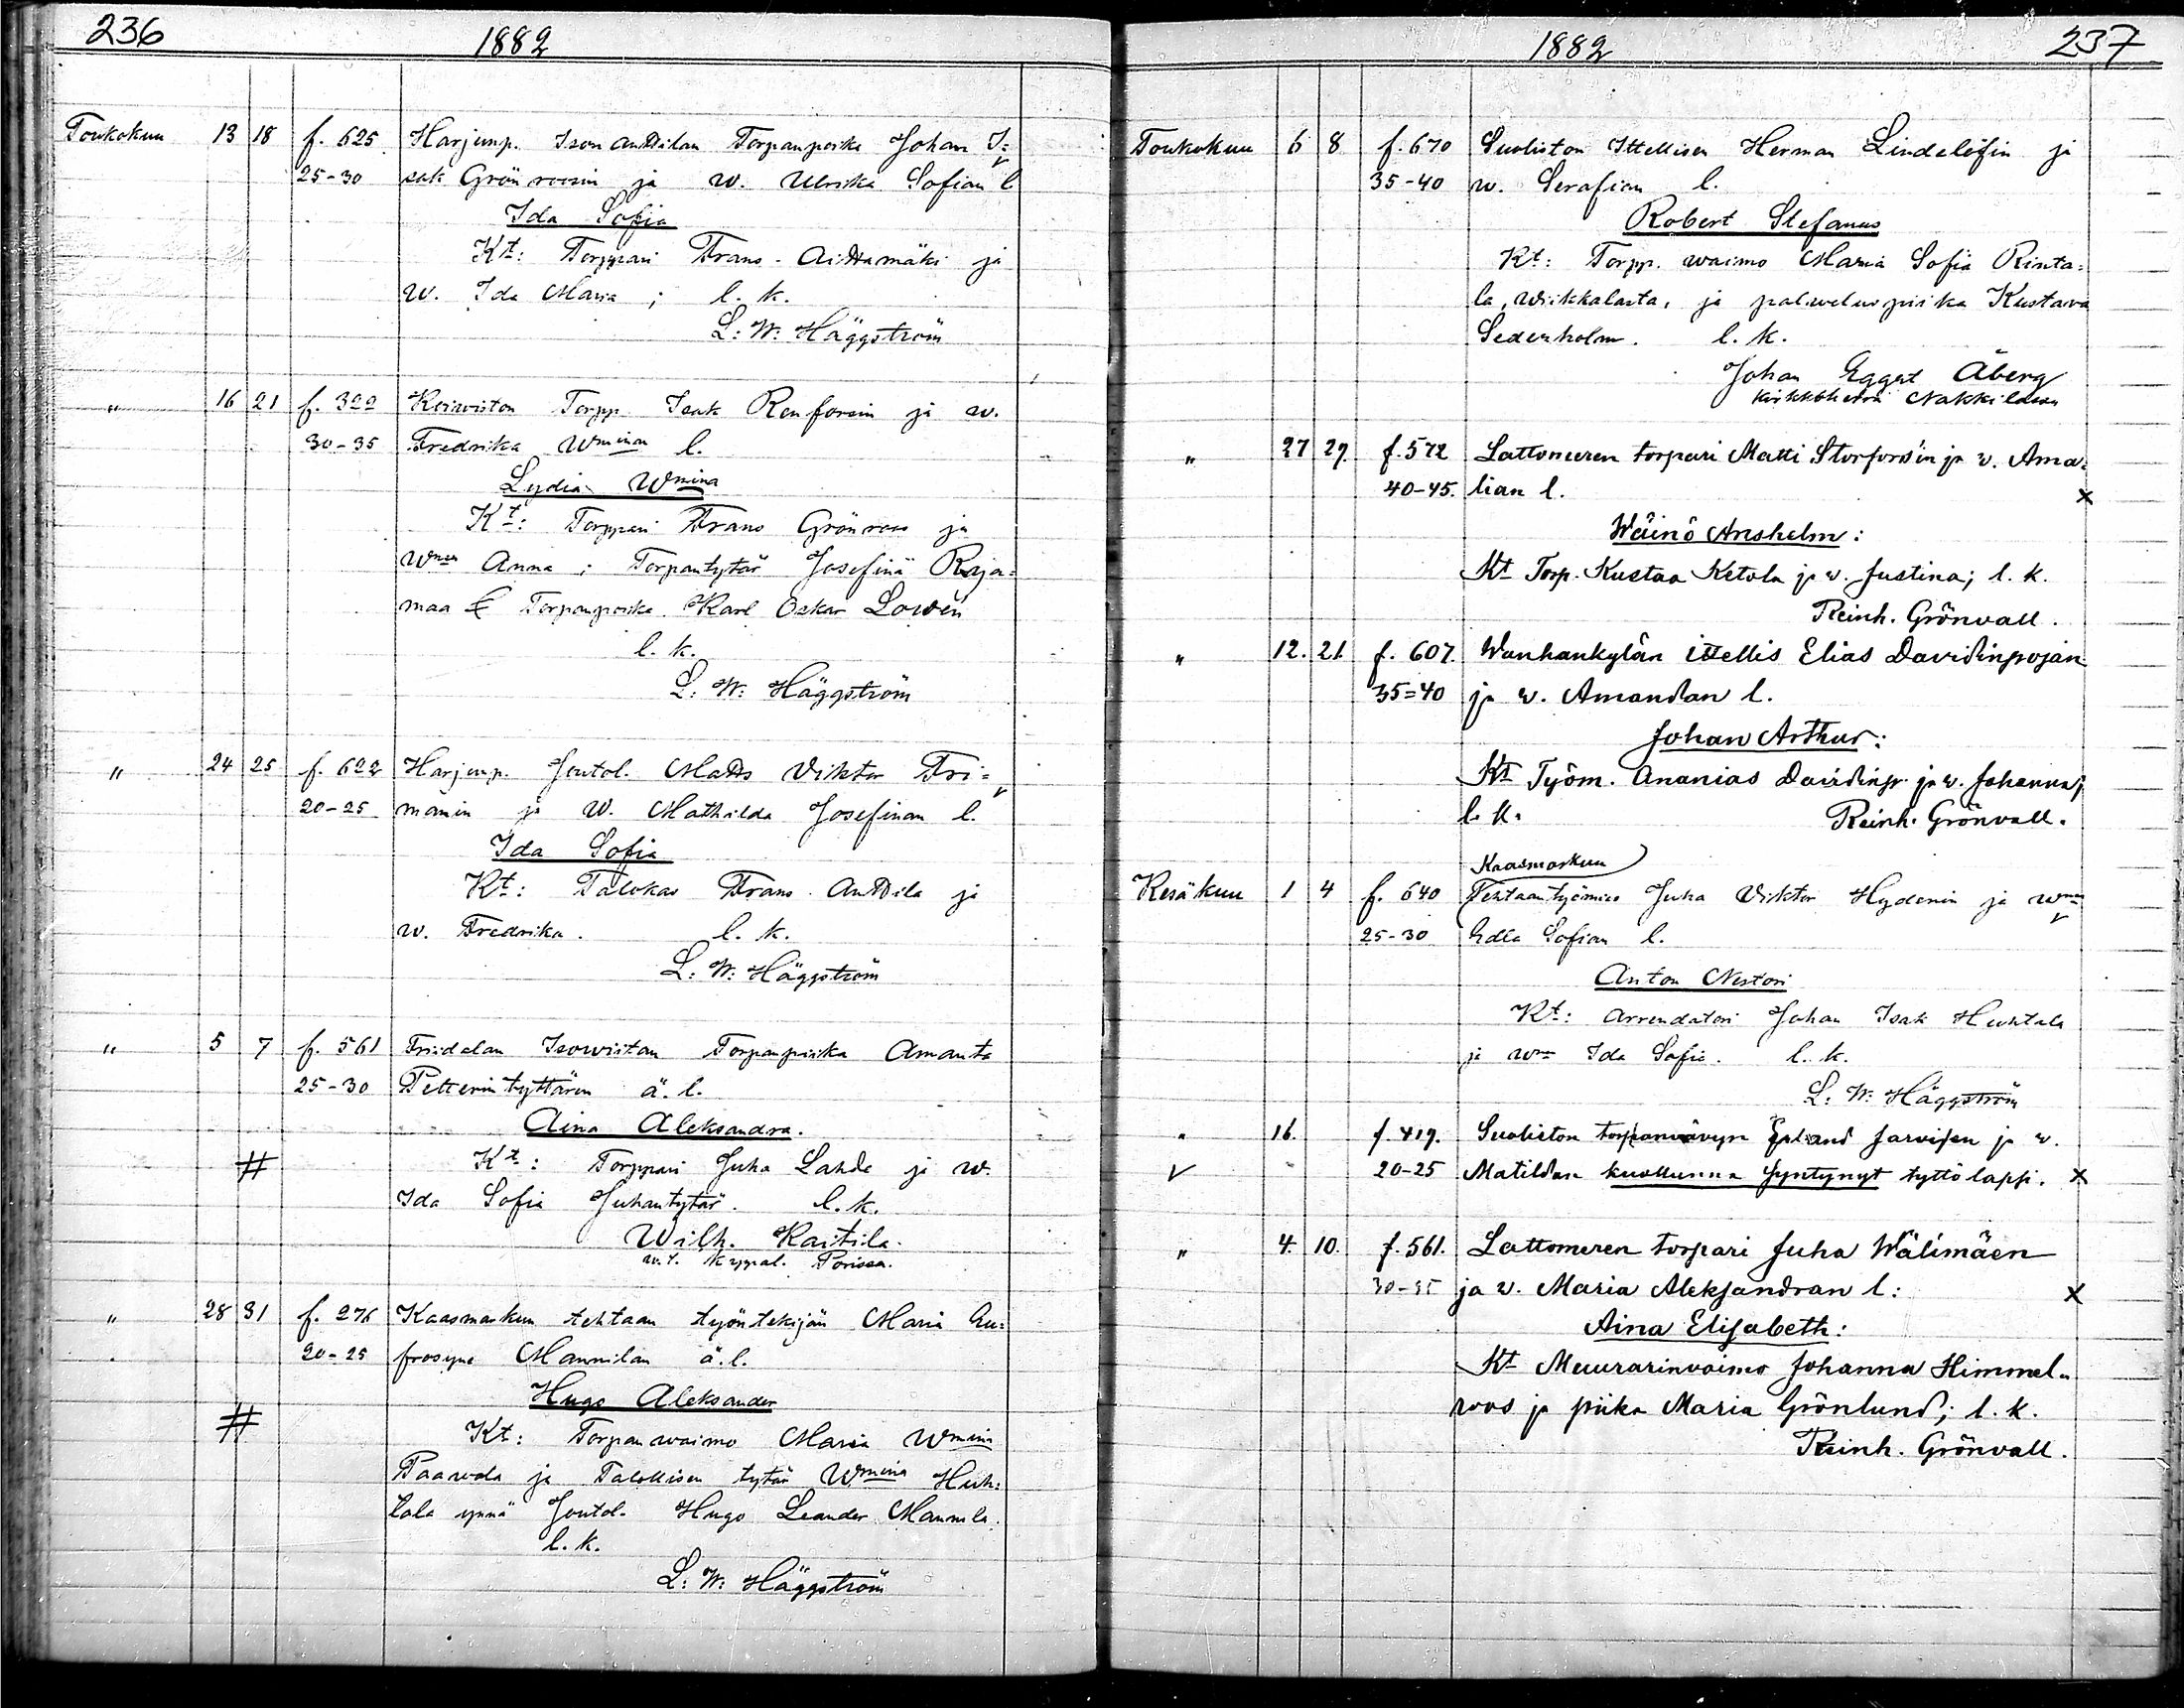 236
1882
Toukokuu 13 18 f. 625 Harjunp. Ison Anttilan Torpanpoika Johan I=
25-30 sak Grönroosin ja w. Ulrika Sofian l
Ida Sofia
Kt: Torppari Frans Aittamäki ja
w. Ida Maria; l. k.
L: W: Häggström
" 16 21 f. 322 Koiwiston Torpp. Isak Renforsin ja w.
30-35 Fredrika Wminan l.
Lydia Wmina
Kt: Torppari Frans Grönroos ja
Wmon Anna; Torpantytär Josefina Raja=
maa & Torpanpoika Karl Oskar Lowén
l. k.
L: W: Häggström
" 24 25 f. 622 Harjunp. Joutol. Matts Viktor Fri=
20-25 manin ja W. Mathilda Josefinan l.
Ida Sofia
Kt: Talokas Frans Anttila ja
w. Fredrika. l. k.
L: W: Häggström
" 5 7 f. 561 Friidalan Isowiitan Torpanpiika Amanta
25-30 Petterin tyttären ä. l.
Aina Aleksandra.
# Kt: Torppari Juha Lahde ja w.
Ida Sofia Juhantytär. l. k.
Wilh. Kaitila.
w. t. Kappal. Porissa.
" 28 31 f. 276 Kaasmarkun tehtaan työntekijän Maria Eu=
20-25 frosyne Mannilan ä. l.
Hugo Aleksander
# Kt: Torpan waimo Maria Wmina
Paawola ja Talollisen tytär Wmina Huh=
tala ynnä Joutol. Hugo Leander Mannila.
l. k.
L: W: Häggström
1882
237
Toukokuu 6 8 f. 670 Suoliston Ittellisen Herman Lindelöfin ja
35-40 w. Serafian l.
Robert Stefanus
Kt: Torpp. waimo Maria Sofia Rinta=
la, Wiikkalasta, ja palweluspiika Kustava
Sederholm. l. k.
Johan Eggert Åberg
Kirkkoherra Nakkilassa
" 27 29. f. 572 Lattomeren torpari Matti Storforsin ja w. Ama=
40-45. lian l. x
Wäinö Anshelm:
Kt Torp. Kustaa Ketola ja w. Justina; l. k.
Reinh. Grönvall.
" 12. 21. f. 607. Wanhankylän ittellis Elias Davidinpojan
35=40 ja w. Amandan l.
Johan Arthur:
Kt Työm. Ananias Davidinp. ja w. Johanna;
l. k. Reinh. Grönvall.
Kaasmarkun
Kesäkuu 1 4 f. 640 Tehtaantyömies Juha Viktor Hydenin ja wmon
25-30 Edla Sofian l.
Anton Nestori
Kt: Arrendatori Johan Isak Huhtala
ja wmo Ida Sofia. l. k.
L: W: Häggström
" 16. f. 419. Suoliston torpanvävyn Erland Jarvisen ja w.
V 20-25 Matildan kuolluna syntynyt tyttö lapsi. x
" 4. 10. f. 561. Lattomeren torpari Juha Wälimäen
30-35 ja w. Maria Aleksandran l: x
Aina Elisabeth:
Kt Muurarinvaimo Johanna Himmel=
roos ja piika Maria Grönlund; l. k.
Reinh. Grönvall.